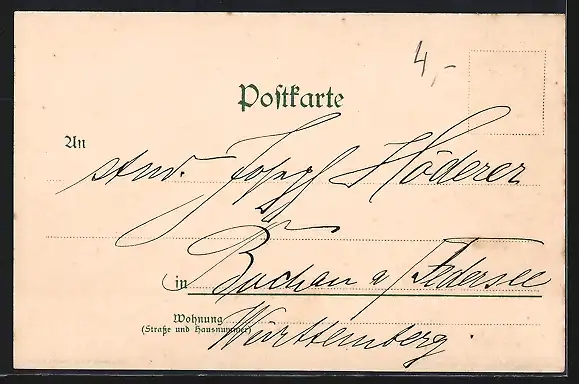 4,-
Postkarte
An
stud. Josef Höderer
in Buchau a/ Federsee
Wohnung
(Straße und Hausnummer)
Württemberg.